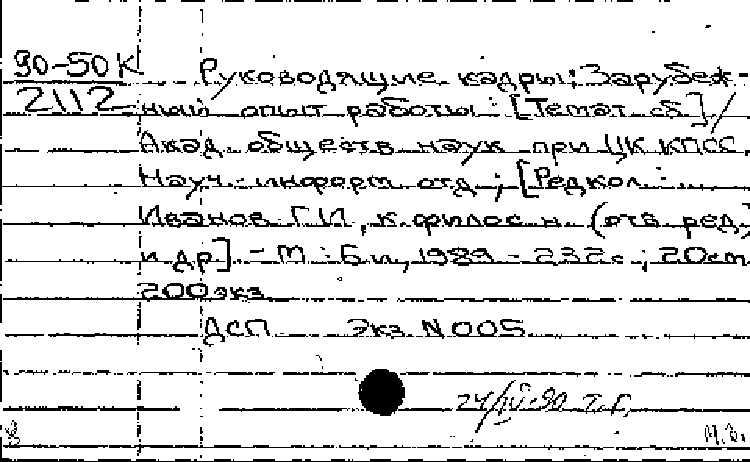 90-50К Руководящие кадры; Зарубеж-
2112 ный опыт работы: [Темат. сб.] /
Акад. обществ. наук при ЦК КПСС,
Науч.-информ. отд.; [Редкол.: ...
Иванов Г.И., к. филос. н. (отв. ред.)
и др.]. - М.: Б.и., 1989. - 232 с.; 20 см.
200 экз.
ДСП Экз. N 005
24/IV-90 Т.Г.